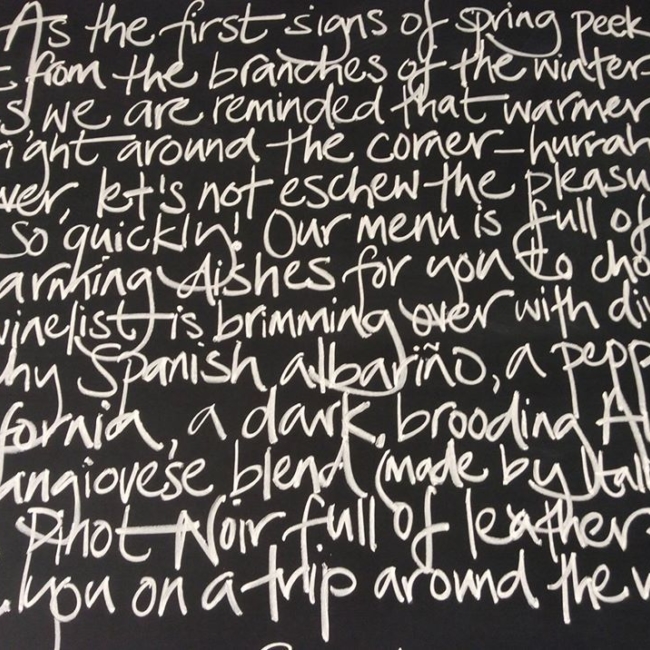 As the first signs of spring peek
from the branches of the winter
s, we are reminded that warmer
right around the corner - hurrah
ver, let's not eschew the pleasu
so quickly! Our menu is full of
arming dishes for you to cho
winelist is brimming over with di
hy Spanish albariño, a pepp
fornia, a dark, brooding A
angiovese blend (made by Ital
Pinot Noir full of leather
you on a trip around the w